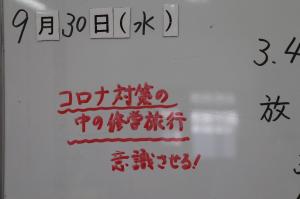 9月30日(水)
3.4
放
コロナ対策の
中の修学旅行
意識させる!